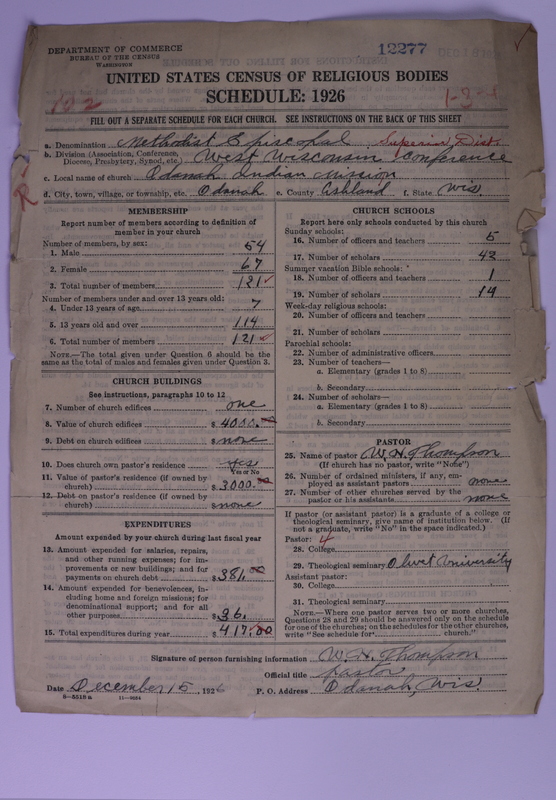 DEPARTMENT OF COMMERCE
BUREAU OF THE CENSUS
WASHINGTON
12277
UNITED STATES CENSUS OF RELIGIOUS BODIES
SCHEDULE: 1926
102
1-3-4
FILL OUT A SEPARATE SCHEDULE FOR EACH CHURCH. SEE INSTRUCTIONS ON THE BACK OF THIS SHEET
a. Denomination Methodist Episcopal Superior Dist.
b. Division (Association, Conference, Diocese, Presbytery, Synod, etc.) West Wisconsin Conference
c. Local name of church Odanah Indian Mission
d. City, town, village, or township, etc. Odanah e. County Ashland f. State Wis.
R
MEMBERSHIP
Report number of members according to definition of member in your church
Number of members, by sex:
1. Male 54
2. Female 67
3. Total number of members 121
Number of members under and over 13 years old:
4. Under 13 years of age 7
5. 13 years old and over 114
6. Total number of members 121
NOTE.—The total given under Question 6 should be the same as the total of males and females given under Question 3.
CHURCH BUILDINGS
See instructions, paragraphs 10 to 12
7. Number of church edifices one
8. Value of church edifices $ 4000.00
9. Debt on church edifices $ none
10. Does church own pastor's residence yes
Yes or No
11. Value of pastor's residence (if owned by church) $ 3000.00
12. Debt on pastor's residence (if owned by church) $ none
EXPENDITURES
Amount expended by your church during last fiscal year
13. Amount expended for salaries, repairs, and other running expenses; for improvements or new buildings; and for payments on church debt $ 381.00
14. Amount expended for benevolences, including home and foreign missions; for denominational support; and for all other purposes $ 36.
15. Total expenditures during year $ 417.00
CHURCH SCHOOLS
Report here only schools conducted by this church
Sunday schools:
16. Number of officers and teachers 5
17. Number of scholars 43
Summer vacation Bible schools:
18. Number of officers and teachers 1
19. Number of scholars 19
Week-day religious schools:
20. Number of officers and teachers
21. Number of scholars
Parochial schools:
22. Number of administrative officers
23. Number of teachers—
a. Elementary (grades 1 to 8)
b. Secondary
24. Number of scholars—
a. Elementary (grades 1 to 8)
b. Secondary
PASTOR
25. Name of pastor W. H. Thompson
(If church has no pastor, write "None")
26. Number of ordained ministers, if any, employed as assistant pastors none
27. Number of other churches served by the pastor or his assistants none
If pastor (or assistant pastor) is a graduate of a college or theological seminary, give name of institution below. (If not a graduate, write "No" in the space indicated.)
Pastor: 4
28. College
29. Theological seminary Olivet University
Assistant pastor:
30. College
31. Theological seminary
NOTE.—Where one pastor serves two or more churches, Questions 28 and 29 should be answered only on the schedule for one of the churches; on the schedules for the other churches, write "See schedule for church."
Signature of person furnishing information W. H. Thompson
Official title Pastor
Date December 15, 1926 P. O. Address Odanah, Wis.
8—5518a 11—9684